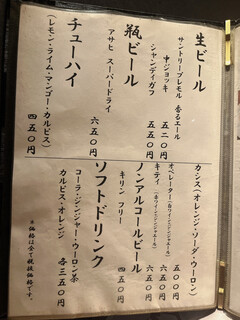 生ビール
サントリープレモル 香るエール
中ジョッキ 五二〇円
シャンディガフ 五五〇円
瓶ビール
アサヒ スーパードライ
六五〇円
チューハイ
(レモン・ライム・マンゴー・カルピス)
四五〇円
カシス(オレンジ・ソーダ・ウーロン)
五〇〇円
オペレーター(白ワイン+ジンジャエール)
六五〇円
キティ(赤ワイン+ジンジャエール)
六五〇円
ノンアルコールビール
キリン フリー 四五〇円
ソフトドリンク
コーラ・ジンジャー・ウーロン茶
カルピス・オレンジ 各三五〇円
※価格は全て税抜価格です。